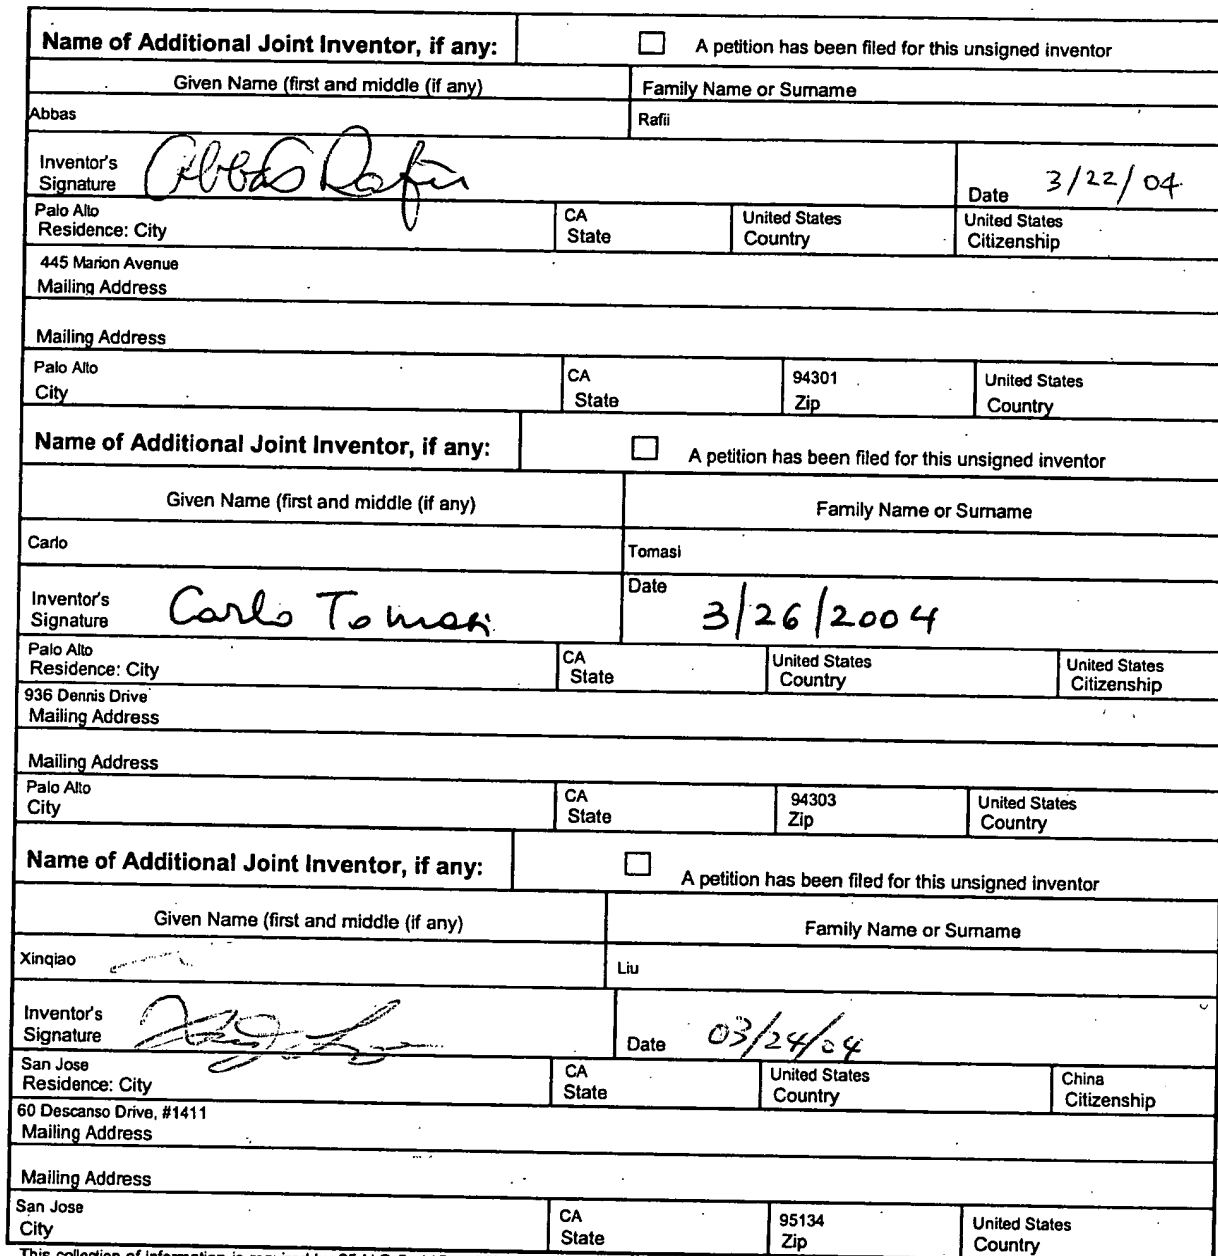 Name of Additional Joint Inventor, if any: ☐ A petition has been filed for this unsigned inventor
Given Name (first and middle (if any) Family Name or Surname
Abbas Rafii
Inventor's
Signature Abbas Rafii Date 3/22/04
Palo Alto CA United States United States
Residence: City State Country Citizenship
445 Marion Avenue
Mailing Address
Mailing Address
Palo Alto CA 94301 United States
City State Zip Country
Name of Additional Joint Inventor, if any: ☐ A petition has been filed for this unsigned inventor
Given Name (first and middle (if any) Family Name or Surname
Carlo Tomasi
Inventor's
Signature Carlo Tomasi Date 3/26/2004
Palo Alto CA United States United States
Residence: City State Country Citizenship
936 Dennis Drive
Mailing Address
Mailing Address
Palo Alto CA 94303 United States
City State Zip Country
Name of Additional Joint Inventor, if any: ☐ A petition has been filed for this unsigned inventor
Given Name (first and middle (if any) Family Name or Surname
Xinqiao Liu
Inventor's
Signature Date 03/24/04
San Jose CA United States China
Residence: City State Country Citizenship
60 Descanso Drive, #1411
Mailing Address
Mailing Address
San Jose CA 95134 United States
City State Zip Country
This collection of information is required by